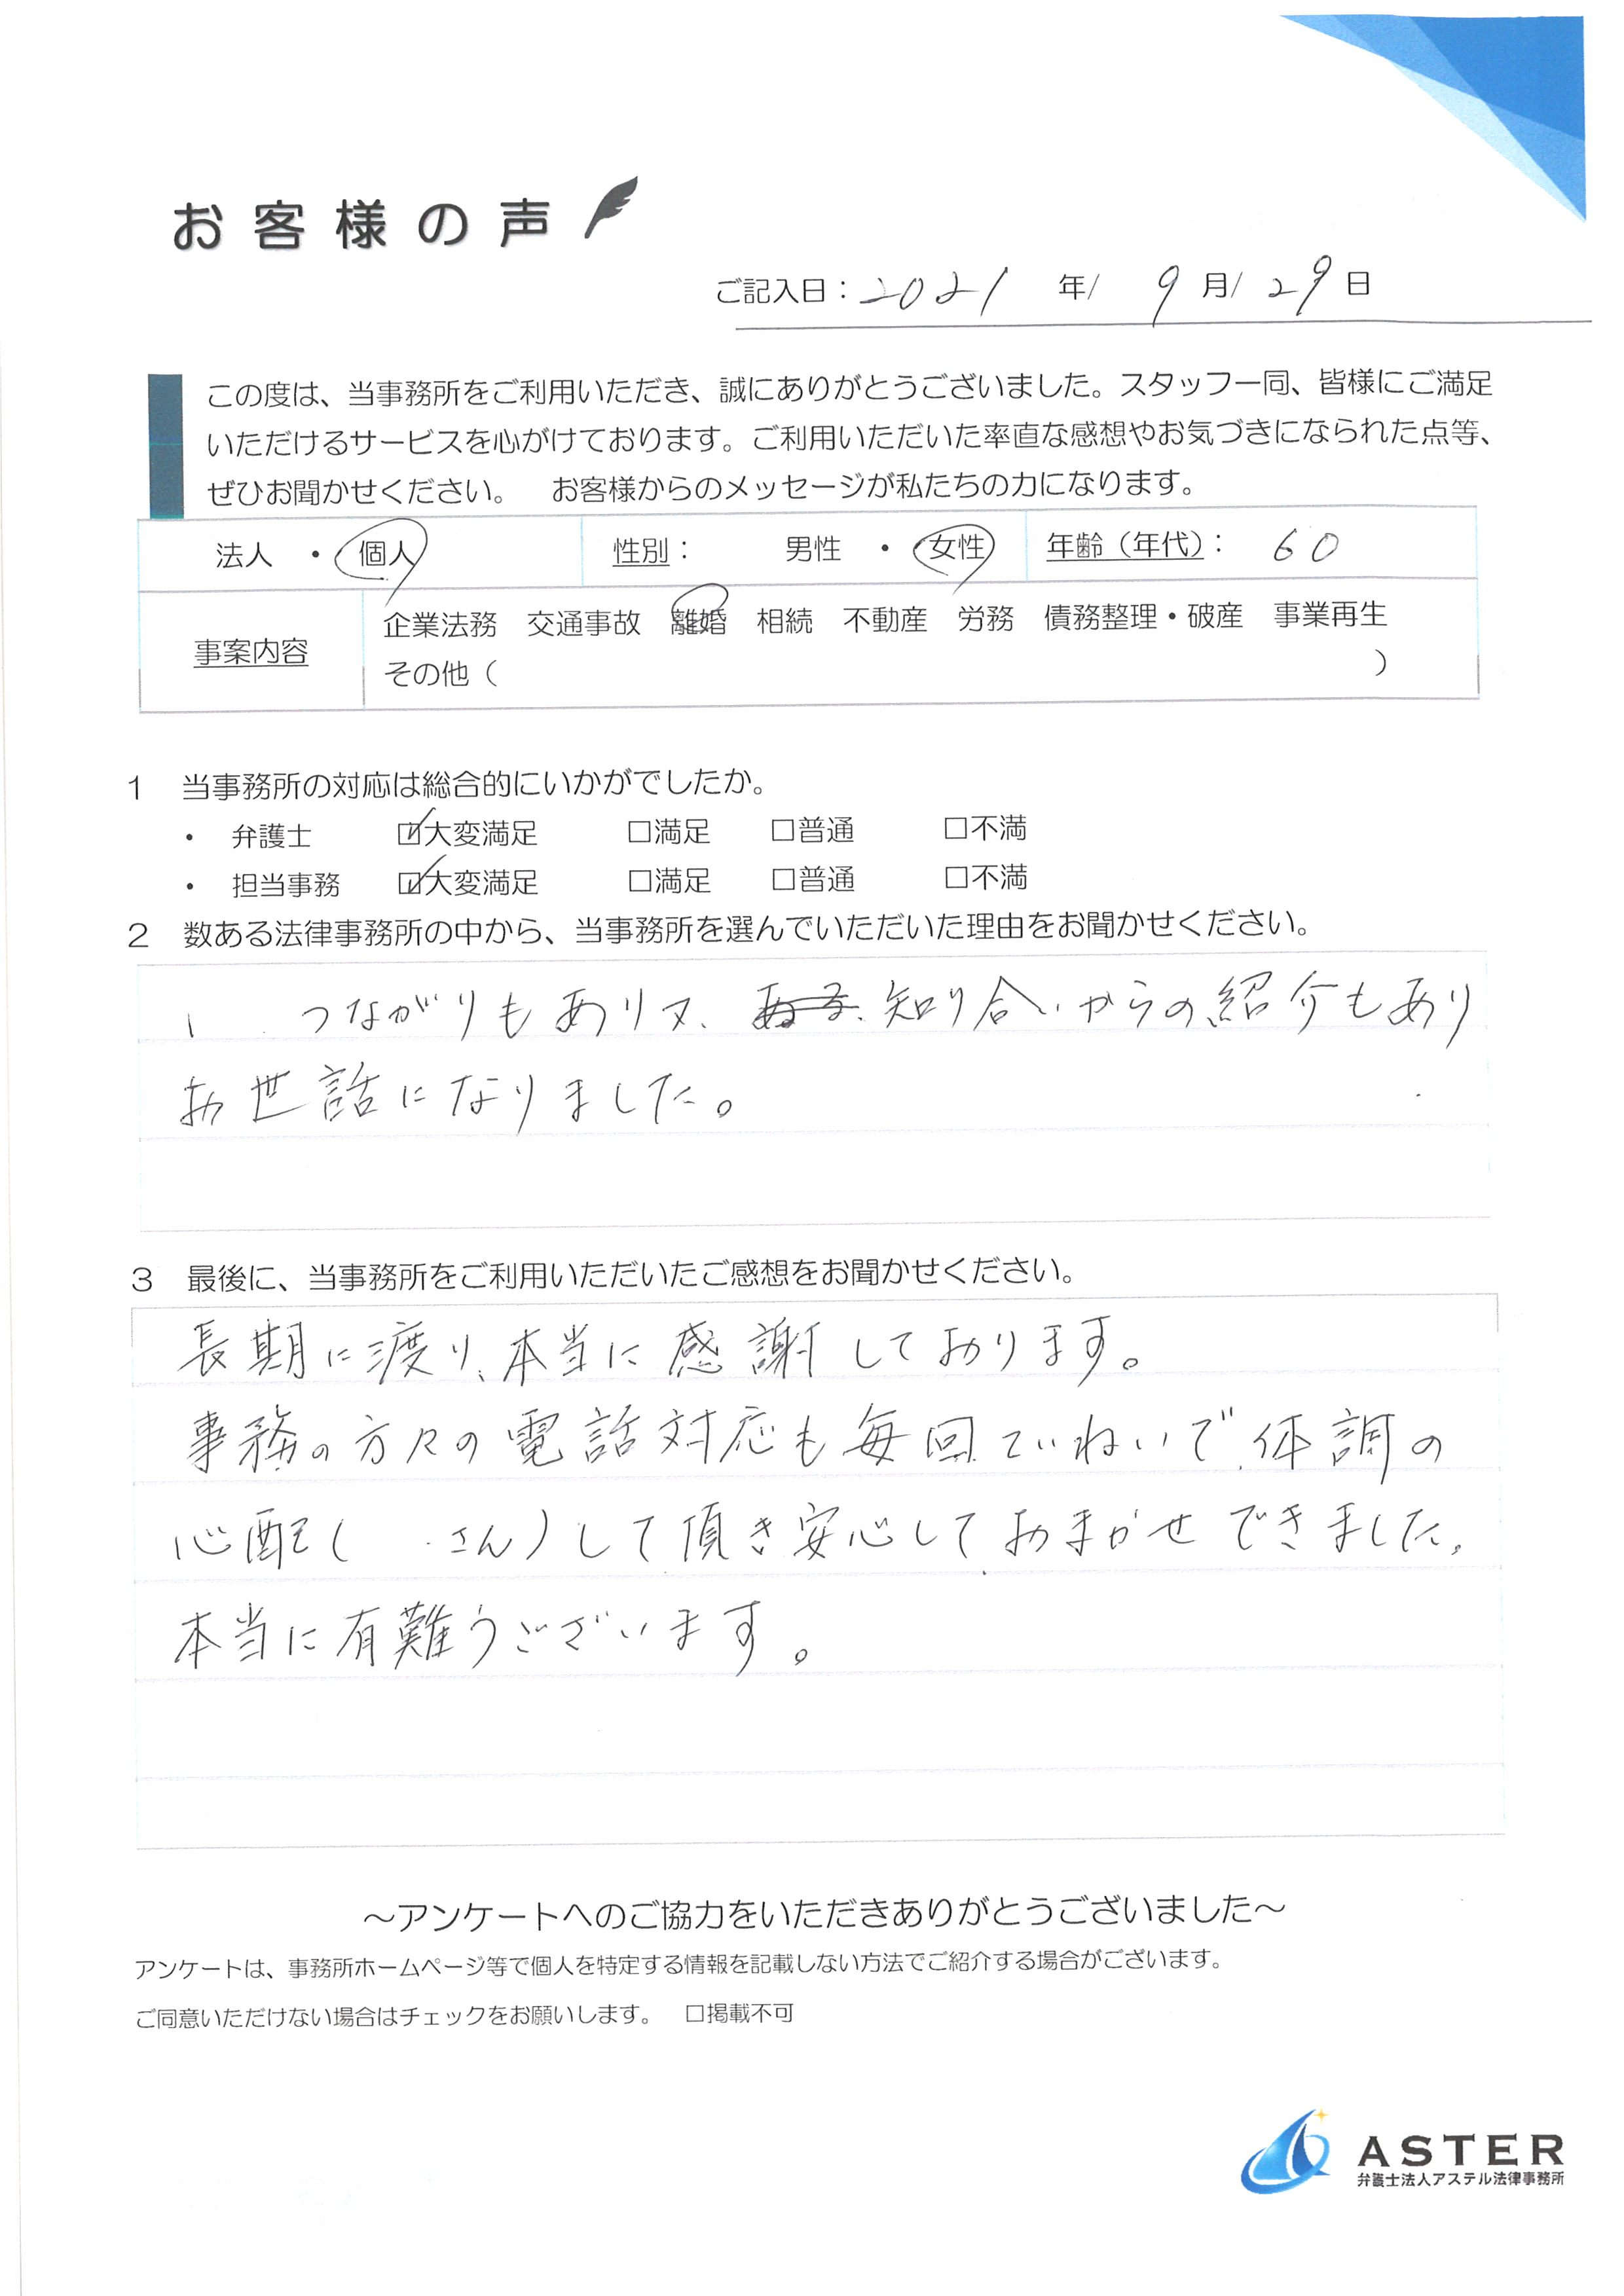 お客様の声
ご記入日：2021 年/ 9月/ 29日
この度は、当事務所をご利用いただき、誠にありがとうございました。スタッフ一同、皆様にご満足
いただけるサービスを心がけております。ご利用いただいた率直な感想やお気づきになられた点等、
ぜひお聞かせください。　お客様からのメッセージが私たちの力になります。
法人 ・ 個人 性別： 男性 ・ 女性 年齢（年代）： 60
事案内容 企業法務 交通事故 離婚 相続 不動産 労務 債務整理・破産 事業再生
その他（ ）
1 当事務所の対応は総合的にいかがでしたか。
・ 弁護士 ☑大変満足 □満足 □普通 □不満
・ 担当事務 ☑大変満足 □満足 □普通 □不満
2 数ある法律事務所の中から、当事務所を選んでいただいた理由をお聞かせください。
つながりもあり又、知り合いからの紹介もあり
お世話になりました。
3 最後に、当事務所をご利用いただいたご感想をお聞かせください。
長期に渡り、本当に感謝しております。
事務の方々の電話対応も毎回ていねいで、体調の
心配( さん)して頂き安心しておまかせできました。
本当に有難うございます。
～アンケートへのご協力をいただきありがとうございました～
アンケートは、事務所ホームページ等で個人を特定する情報を記載しない方法でご紹介する場合がございます。
ご同意いただけない場合はチェックをお願いします。 □掲載不可
ASTER
弁護士法人アステル法律事務所